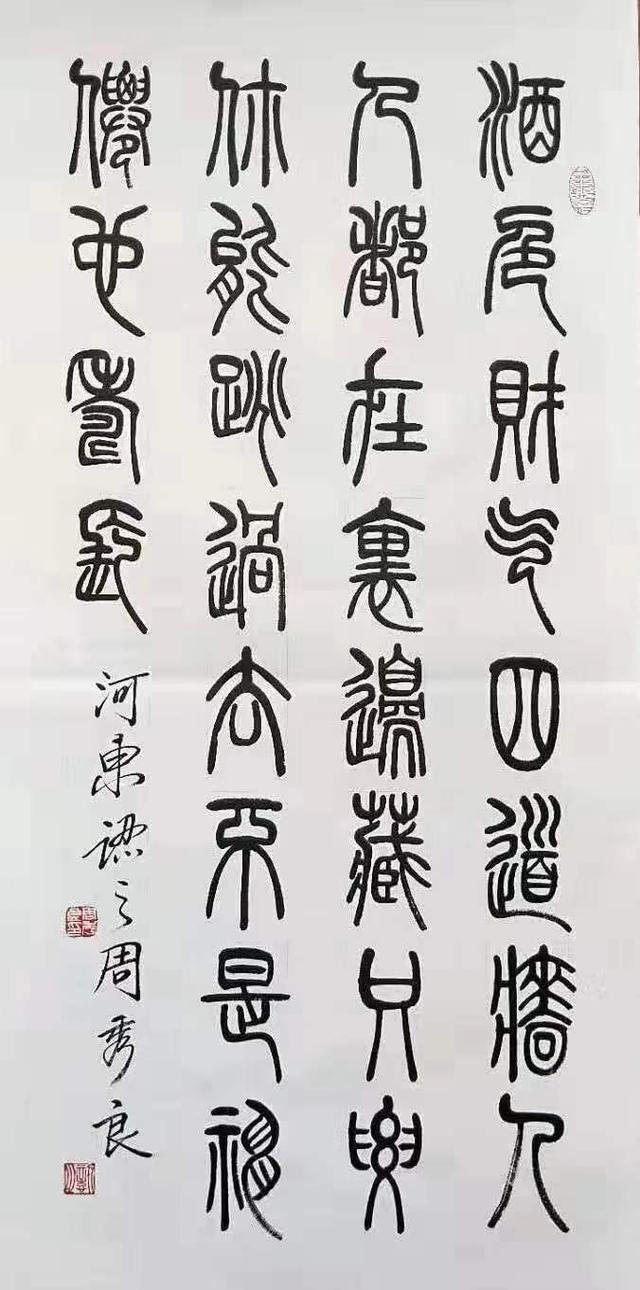 酒色財气四道牆人
人都在裏邊藏只要
你能跳過去不是神
僊也壽長
河東 之周秀良